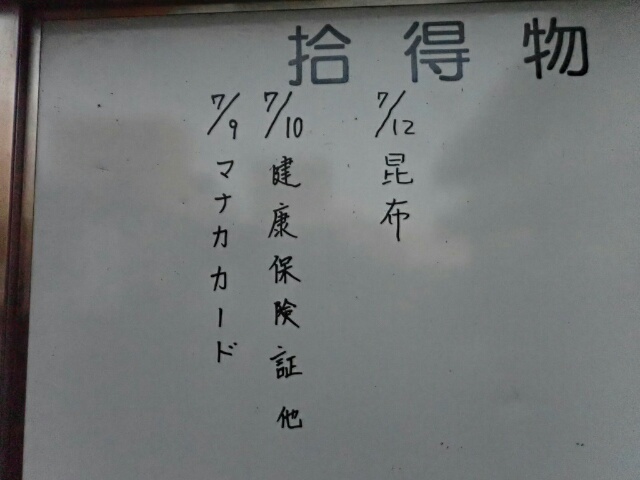 拾得物
7/12 昆布
7/10 健康保険証 他
7/9 マナカカード